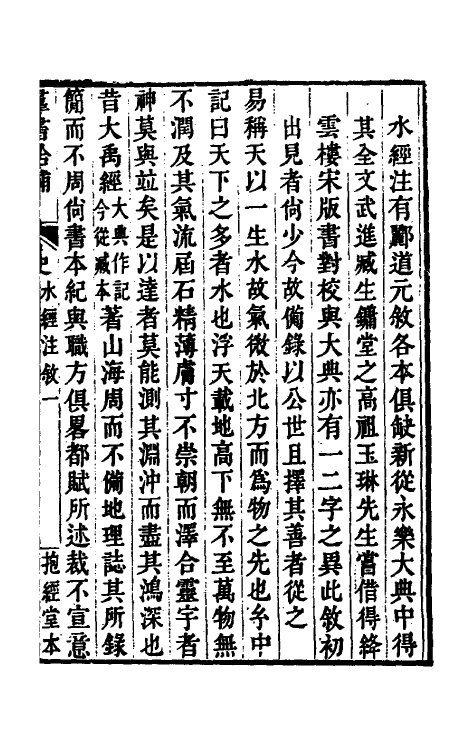 水經注有酈道元敘各本俱缺新從永樂大典中得
其全文武進臧生鏞堂之高祖玉琳先生嘗借得絳
雲樓宋版書對校與大典亦有一二字之異此敘初
出見者尙少今故備錄以公世且擇其善者從之
易稱天以一生水故氣微於北方而爲物之先也𤣥中
記曰天下之多者水也浮天載地高下無不至萬物無
不潤及其氣流屆石精薄膚寸不崇朝而澤合靈宇者
神莫與並矣是以達者莫能測其淵沖而盡其鴻深也
昔大禹經大典作記今從臧本著山海周而不備地理誌其所錄
簡而不周尙書本紀與職方俱畧都賦所述裁不宣意
羣書拾補 史 水經注敘一 抱經堂本